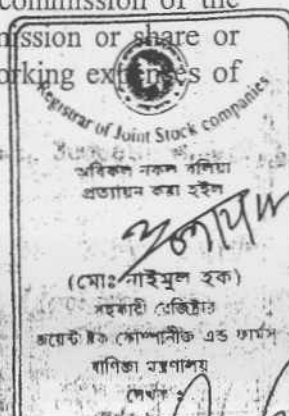 commission of the
mission or share or
orking expenses of
Registrar of Joint Stock companies
অবিকল নকল বলিয়া
প্রত্যায়িত করা হইল
(মোঃ নাইমুল হক)
সহকারী রেজিষ্ট্রার
জয়েন্ট ষ্টক কোম্পানীজ এন্ড ফার্মস
বাণিজ্য মন্ত্রণালয়